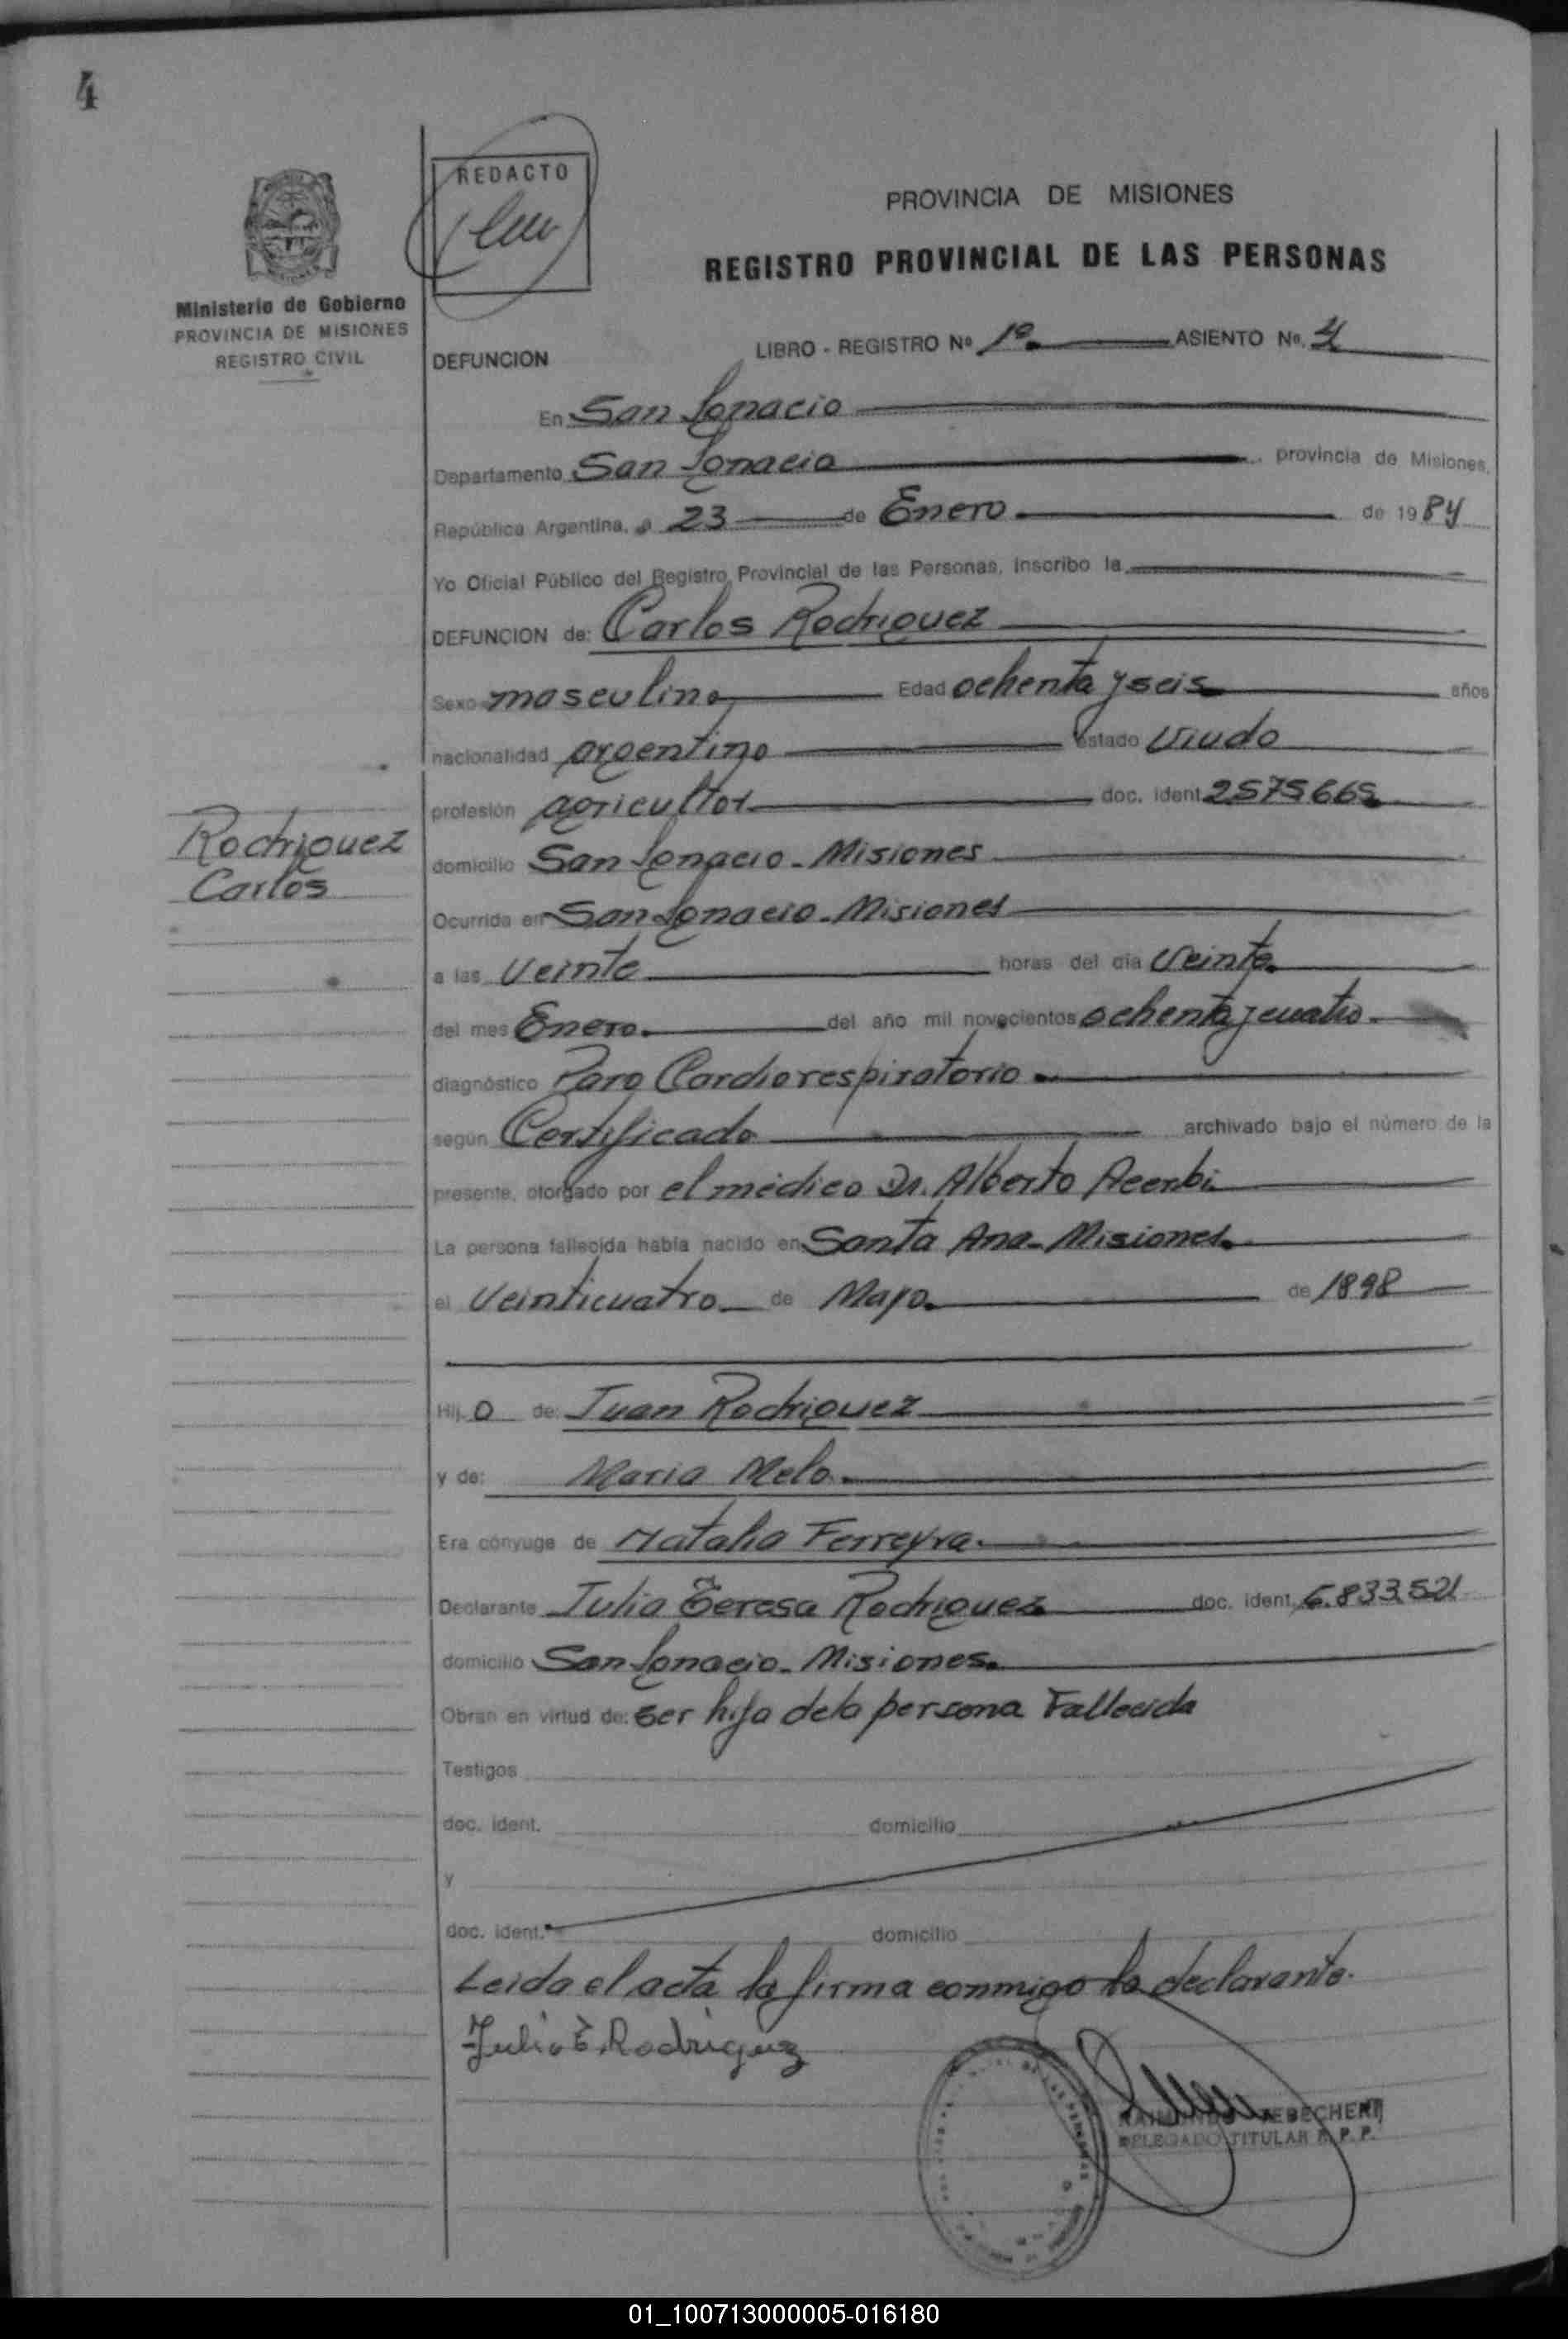 4
REDACTO
PROVINCIA DE MISIONES
REGISTRO PROVINCIAL DE LAS PERSONAS
Ministerio de Gobierno
PROVINCIA DE MISIONES
REGISTRO CIVIL
DEFUNCION
LIBRO - REGISTRO Nº 1º ASIENTO Nº. 4
En San Ignacio
Departamento San Ignacio provincia de Misiones,
República Argentina, a 23 de Enero de 1984
Yo Oficial Público del Registro Provincial de las Personas, inscribo la
DEFUNCION de: Carlos Rodriguez
Sexo masculino Edad ochenta y seis años
nacionalidad argentino estado Viudo
profesión agricultor doc. ident. 2575665
Rodriguez
Carlos
domicilio San Ignacio - Misiones
Ocurrida en San Ignacio - Misiones
a las Veinte horas del día Veinte
del mes Enero. del año mil novecientos ochenta y cuatro.
diagnóstico Paro Cardiorespiratorio
según Certificado archivado bajo el número de la
presente, otorgado por el médico Dr. Alberto Acerbi
La persona fallecida había nacido en Santa Ana - Misiones.
el Veinticuatro de Mayo. de 1898
Hij o de: Juan Rodriguez
y de: Maria Melo.
Era cónyuge de Natalia Ferreyra.
Declarante Julia Teresa Rodriguez doc. ident. 6.833.521
domicilio San Ignacio - Misiones.
Obran en virtud de: ser hija de la persona Fallecida
Testigos
doc. ident. domicilio
y
doc. ident. domicilio
Leida el acta la firma conmigo la declarante.
Julia T. Rodriguez
DELEGADO TITULAR R. P. P.
01_100713000005-016180